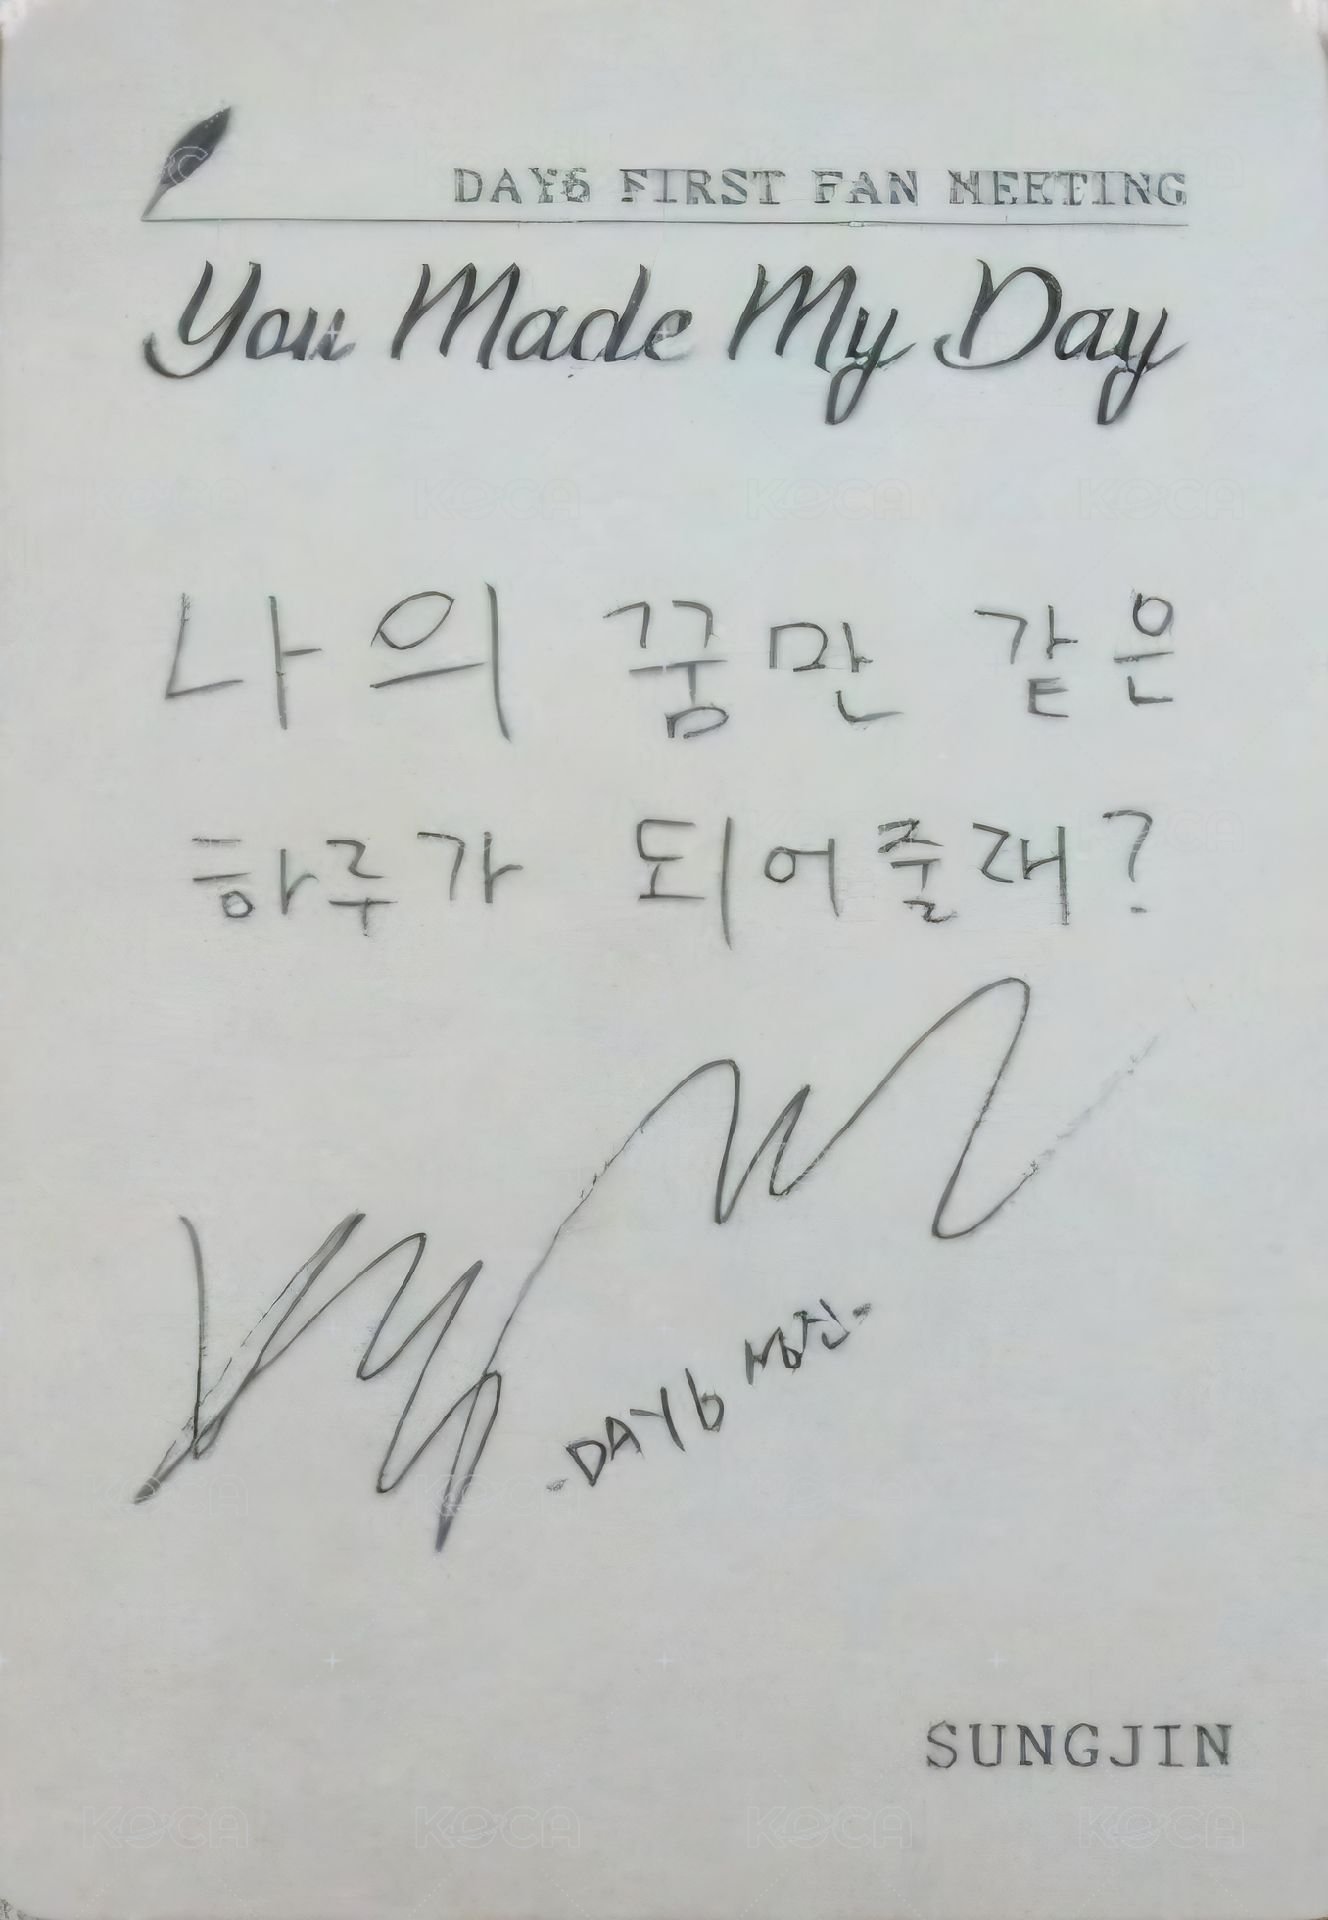 DAY6 FIRST FAN MEETING
You Made My Day
나의 꿈만 같은
하루가 되어줄래?
-DAY6 성진-
SUNGJIN
KOCA